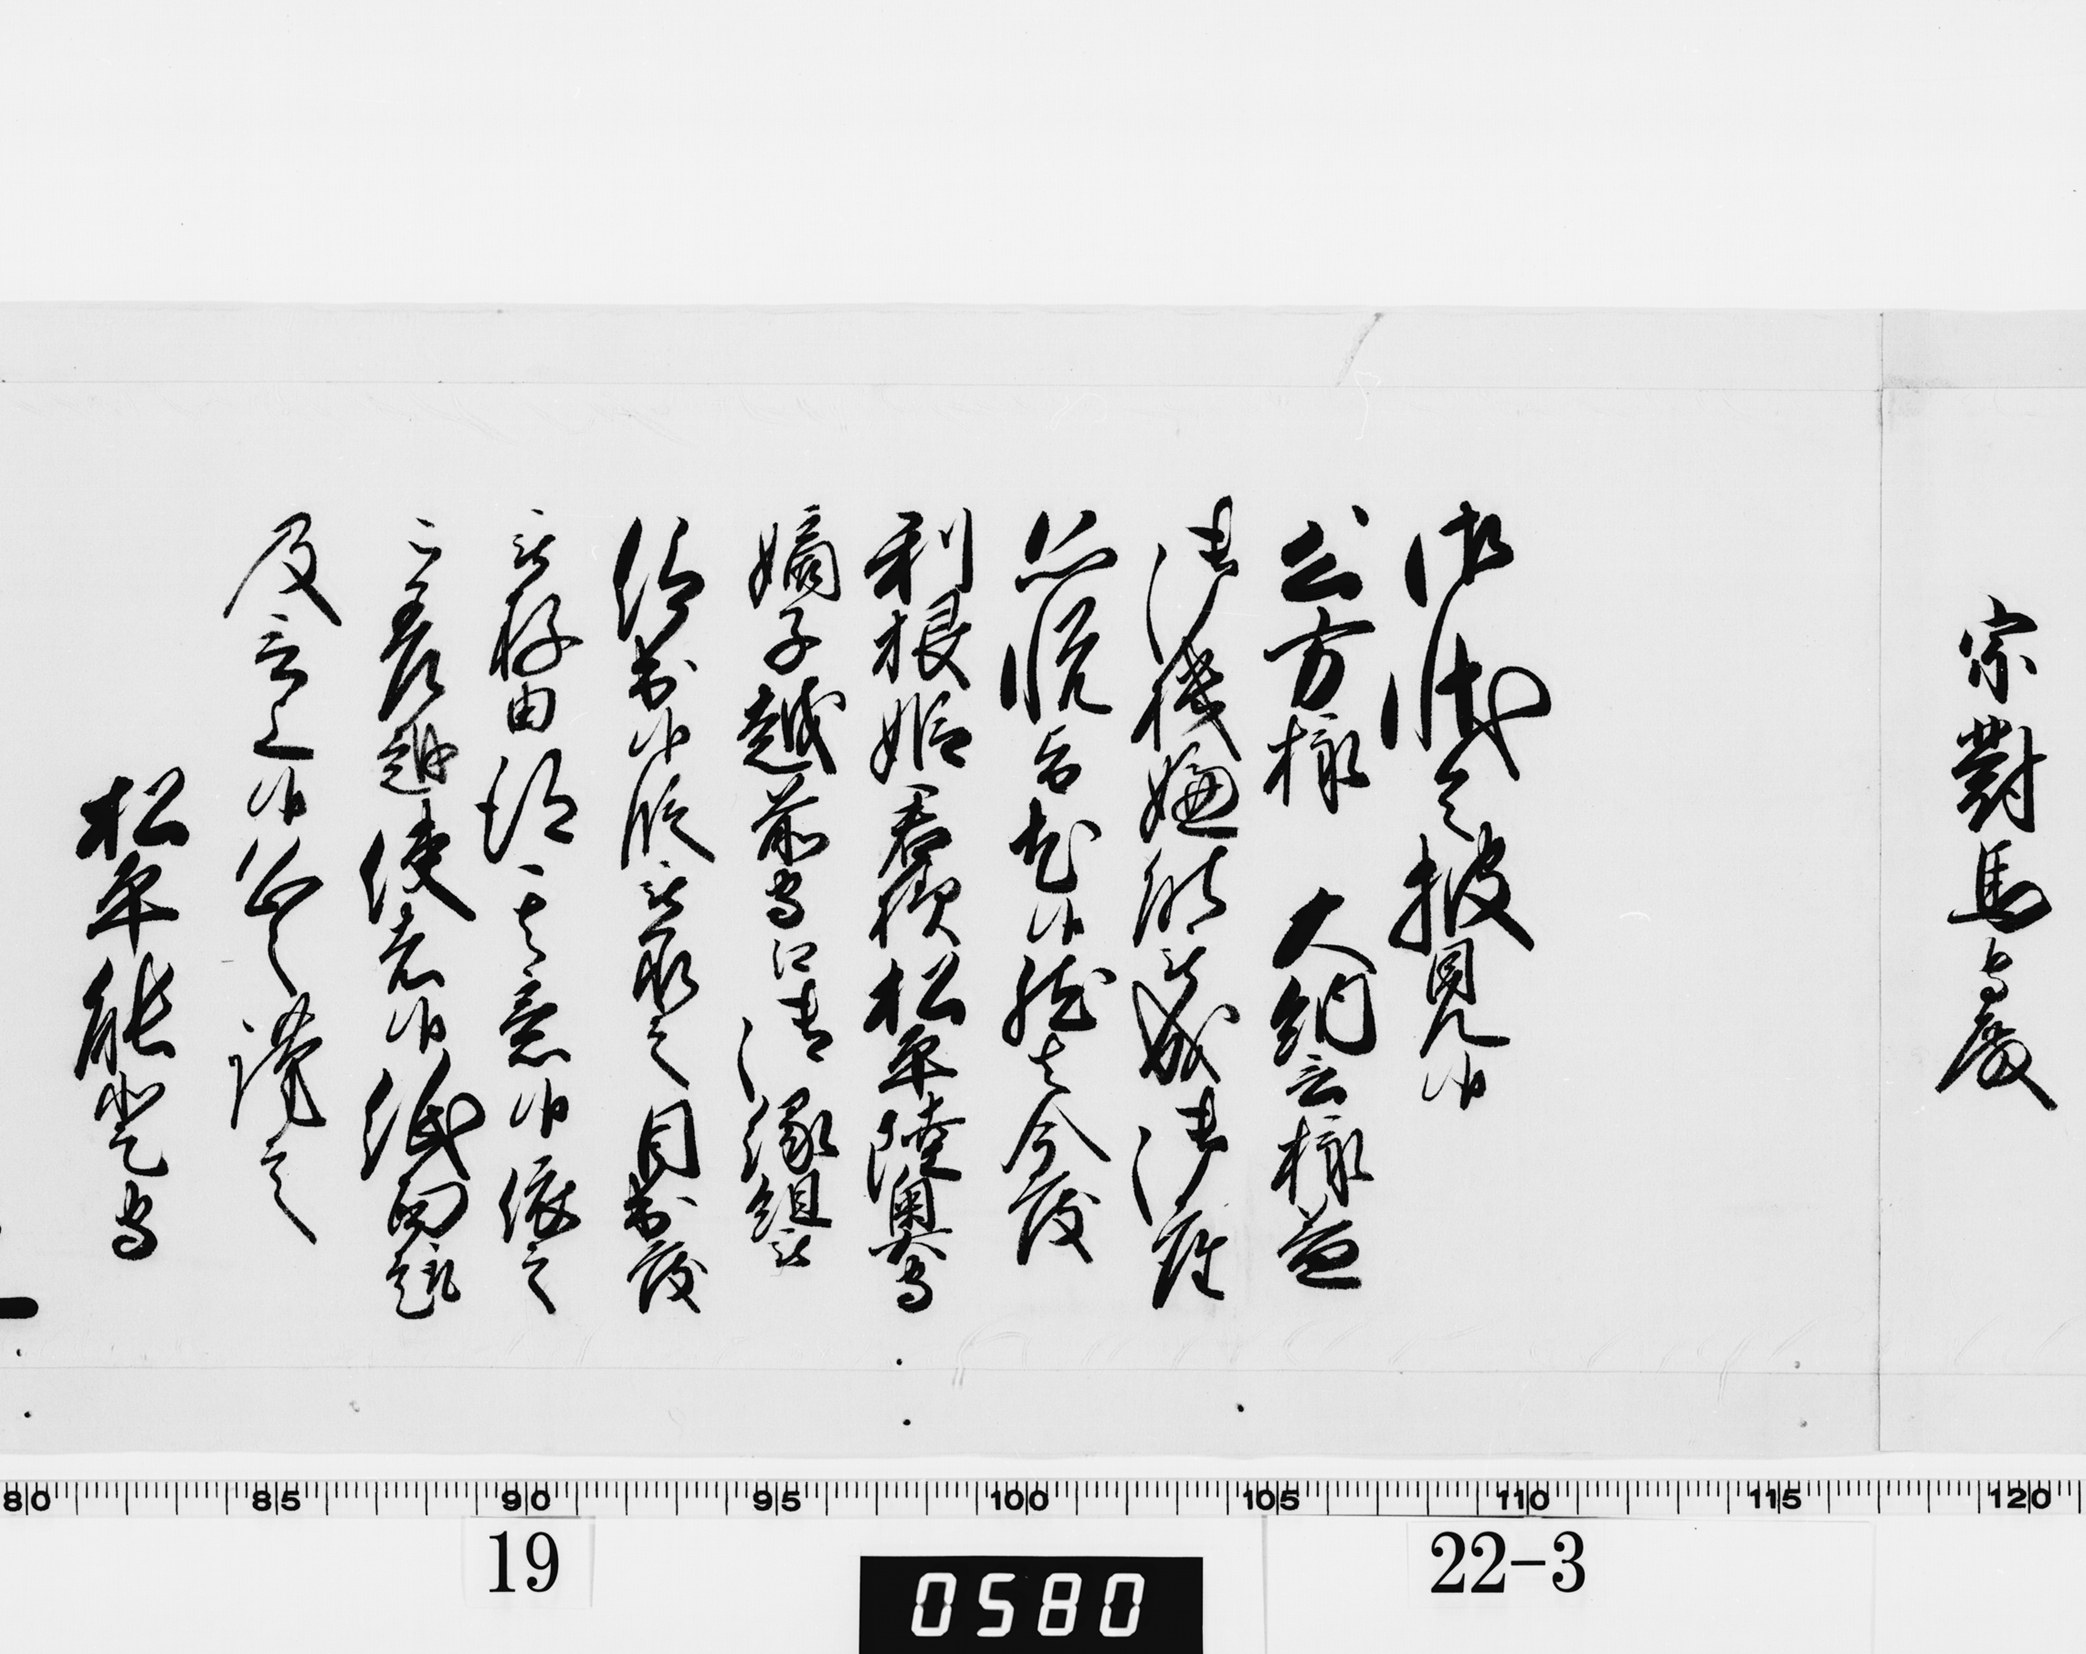 宗對馬守殿
御状令披見候
公方様　大納言様益
御機嫌能被成御座
恐悦旨尤候然者今度
利根姫君様松平陸奥守
嫡子越前守江御縁組被
仰出候段被承之目出度
被存由得其意候依之
被差越使者候紙面趣
及言上候恐々謹言
松平能登守
80 85 90 95 100 105 110 115 120
19
0580
22-3